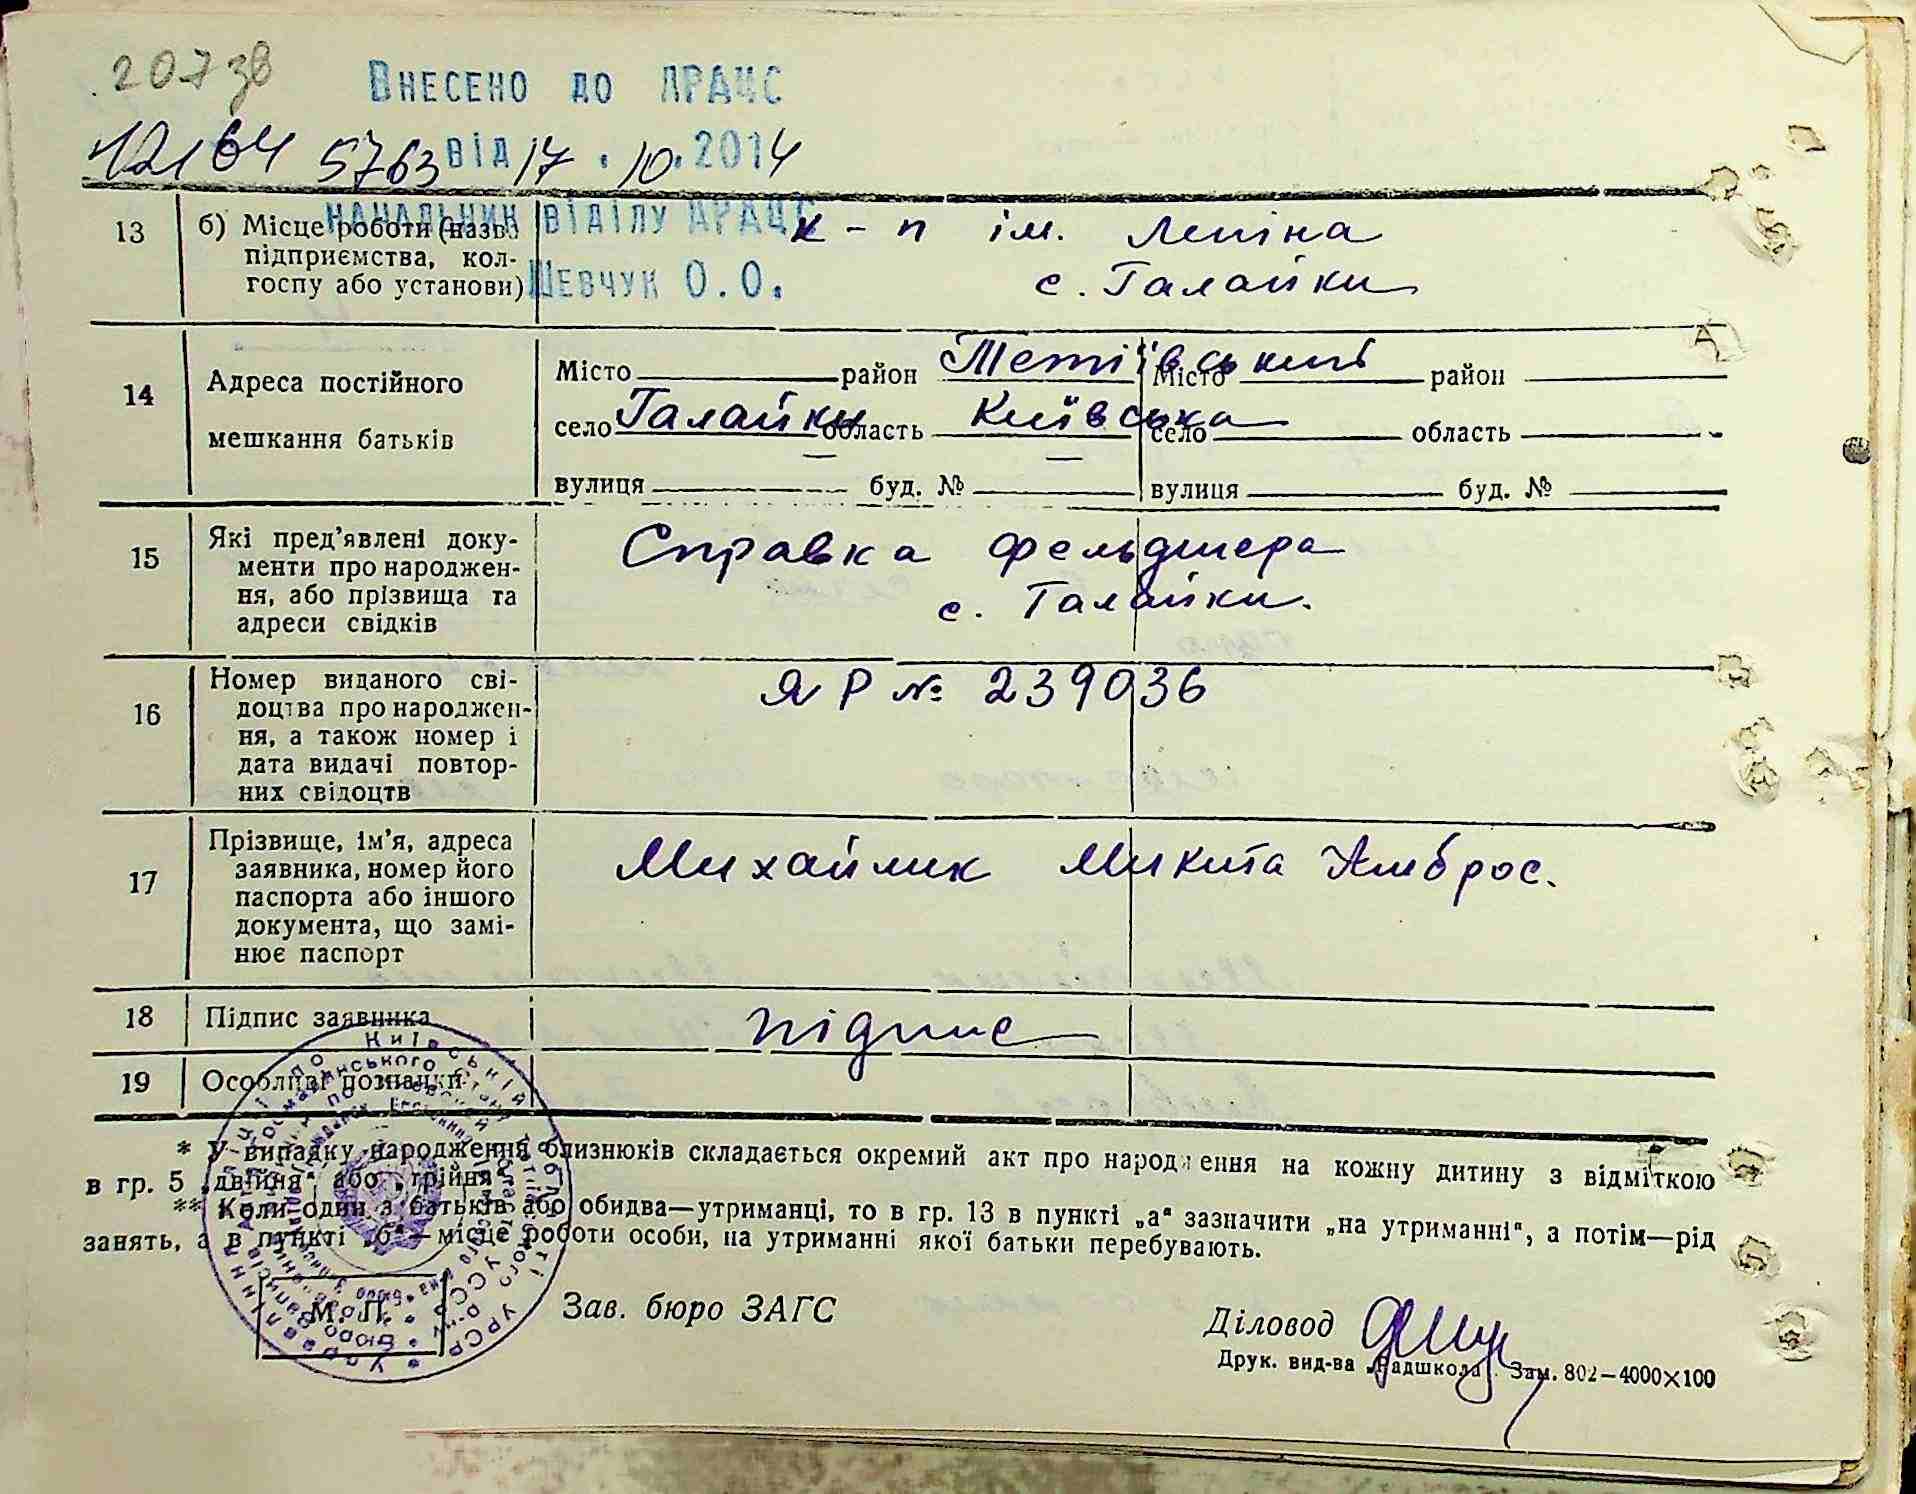 207зв
Внесено до ДРАЦС
12164 5763 від 17.10.2014
Начальник відділу ДРАЦС
Шевчук О.О.
13
б) Місце роботи (назва
підприємства, кол-
госпу або установи)
к-п ім. Леніна
с. Галайки
14
Адреса постійного
мешкання батьків
Місто район Тетіївський
село Галайки область Київська
вулиця — буд. № —
Місто район
село область
вулиця буд. №
15
Які пред'явлені доку-
менти про народжен-
ня, або прізвища та
адреси свідків
Справка фельдшера
с. Галайки.
16
Номер виданого сві-
доцтва про народжен-
ня, а також номер і
дата видачі повтор-
них свідоцтв
ЯР № 239036
17
Прізвище, ім'я, адреса
заявника, номер його
паспорта або іншого
документа, що замі-
нює паспорт
Михайлик Микита Амброс.
18
Підпис заявника
підпис
19
Особливі позначки
* У випадку народження близнюків складається окремий акт про народження на кожну дитину з відміткою
в гр. 5 „двійня“ або „трійня“.
** Коли один з батьків або обидва—утриманці, то в гр. 13 в пункті „а“ зазначити „на утриманні“, а потім—рід
занять, а в пункті „б“—місце роботи особи, на утриманні якої батьки перебувають.
М. П.
Зав. бюро ЗАГС
Діловод
Друк. вид-ва „Радшкола“. Зам. 802—4000×100